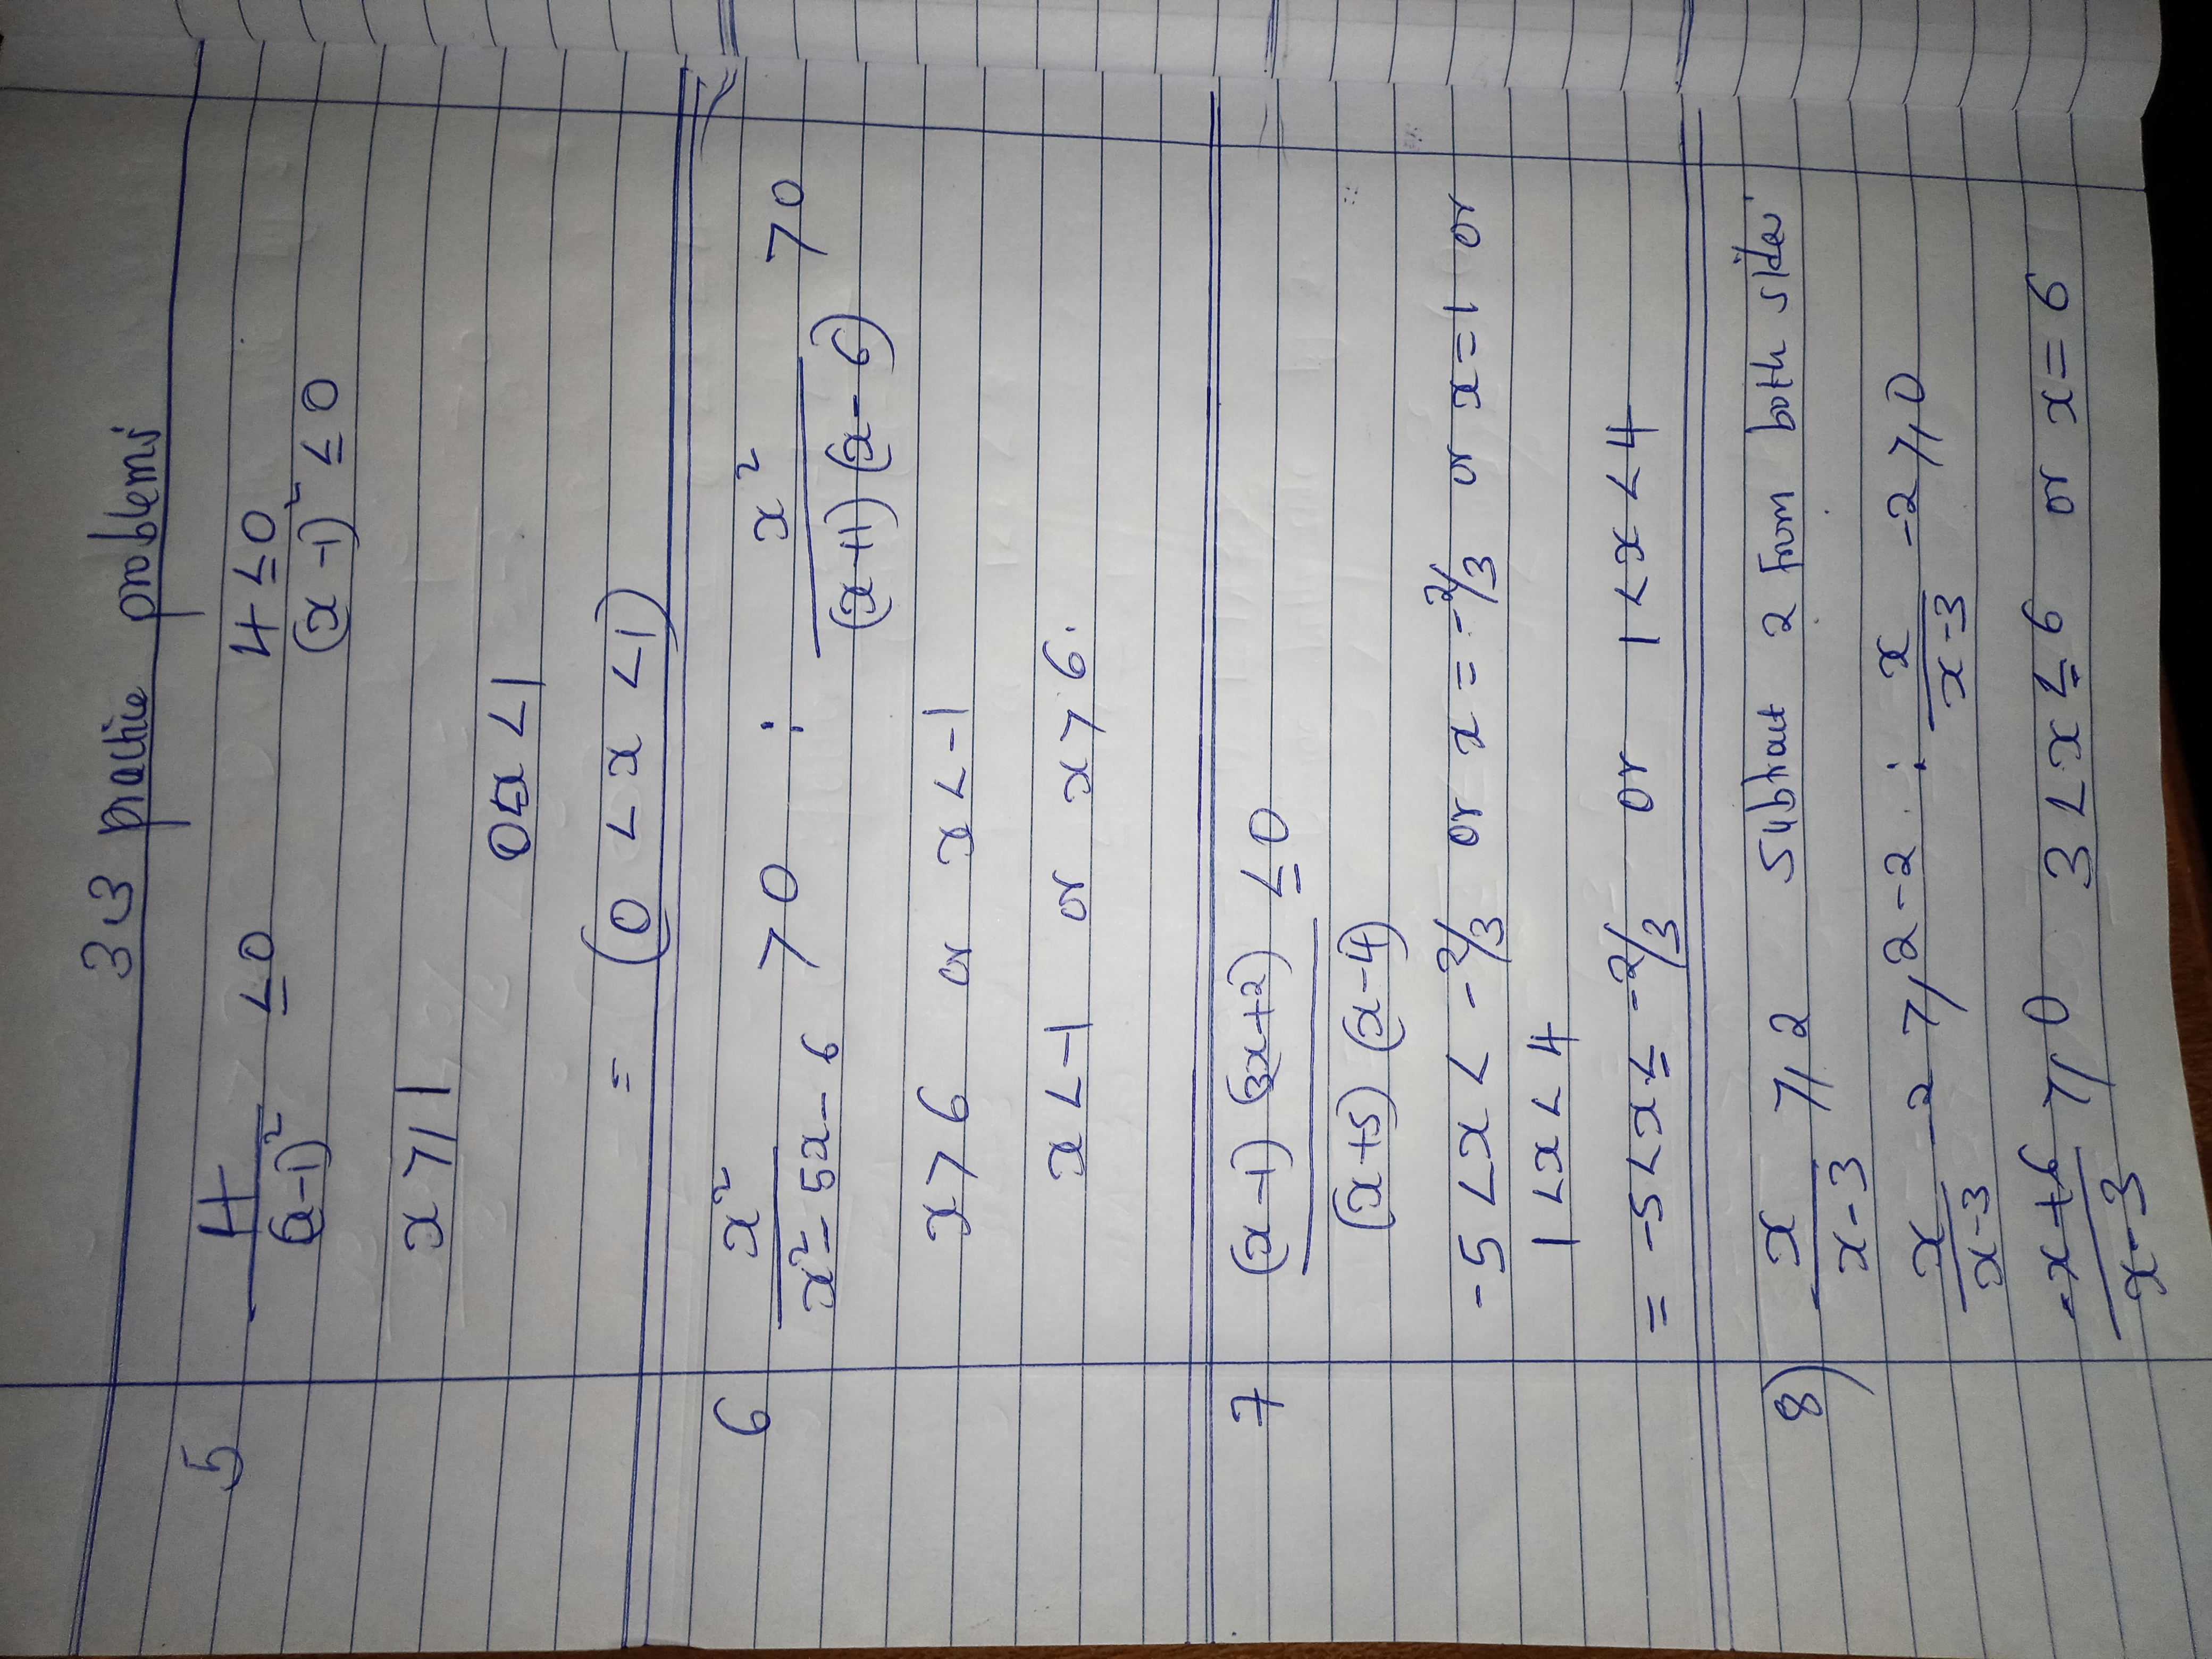 3 3 practice problems
5 4/(x-1)² ≤0 4≤0/(x-1)² ≤0
x>1
0≤x<1
= (0<x<1)
6 x²/x²-5x-6 >0 : x²/(x+1)(x-6) >0
x>6 or x<-1
x<-1 or x>6.
7 (x-1)(3x+2)/(x+5)(x-4) ≤0
-5<x<-2/3 or x=-2/3 or x=1 or
1<x<4
= -5<x≤-2/3 or 1<x<4
8) x/x-3 ≥2 Subtract 2 from both sides
x/x-3 -2 ≥2-2 : x/x-3 -2≥0
-x+6/x-3 ≥0 3<x≤6 or x=6